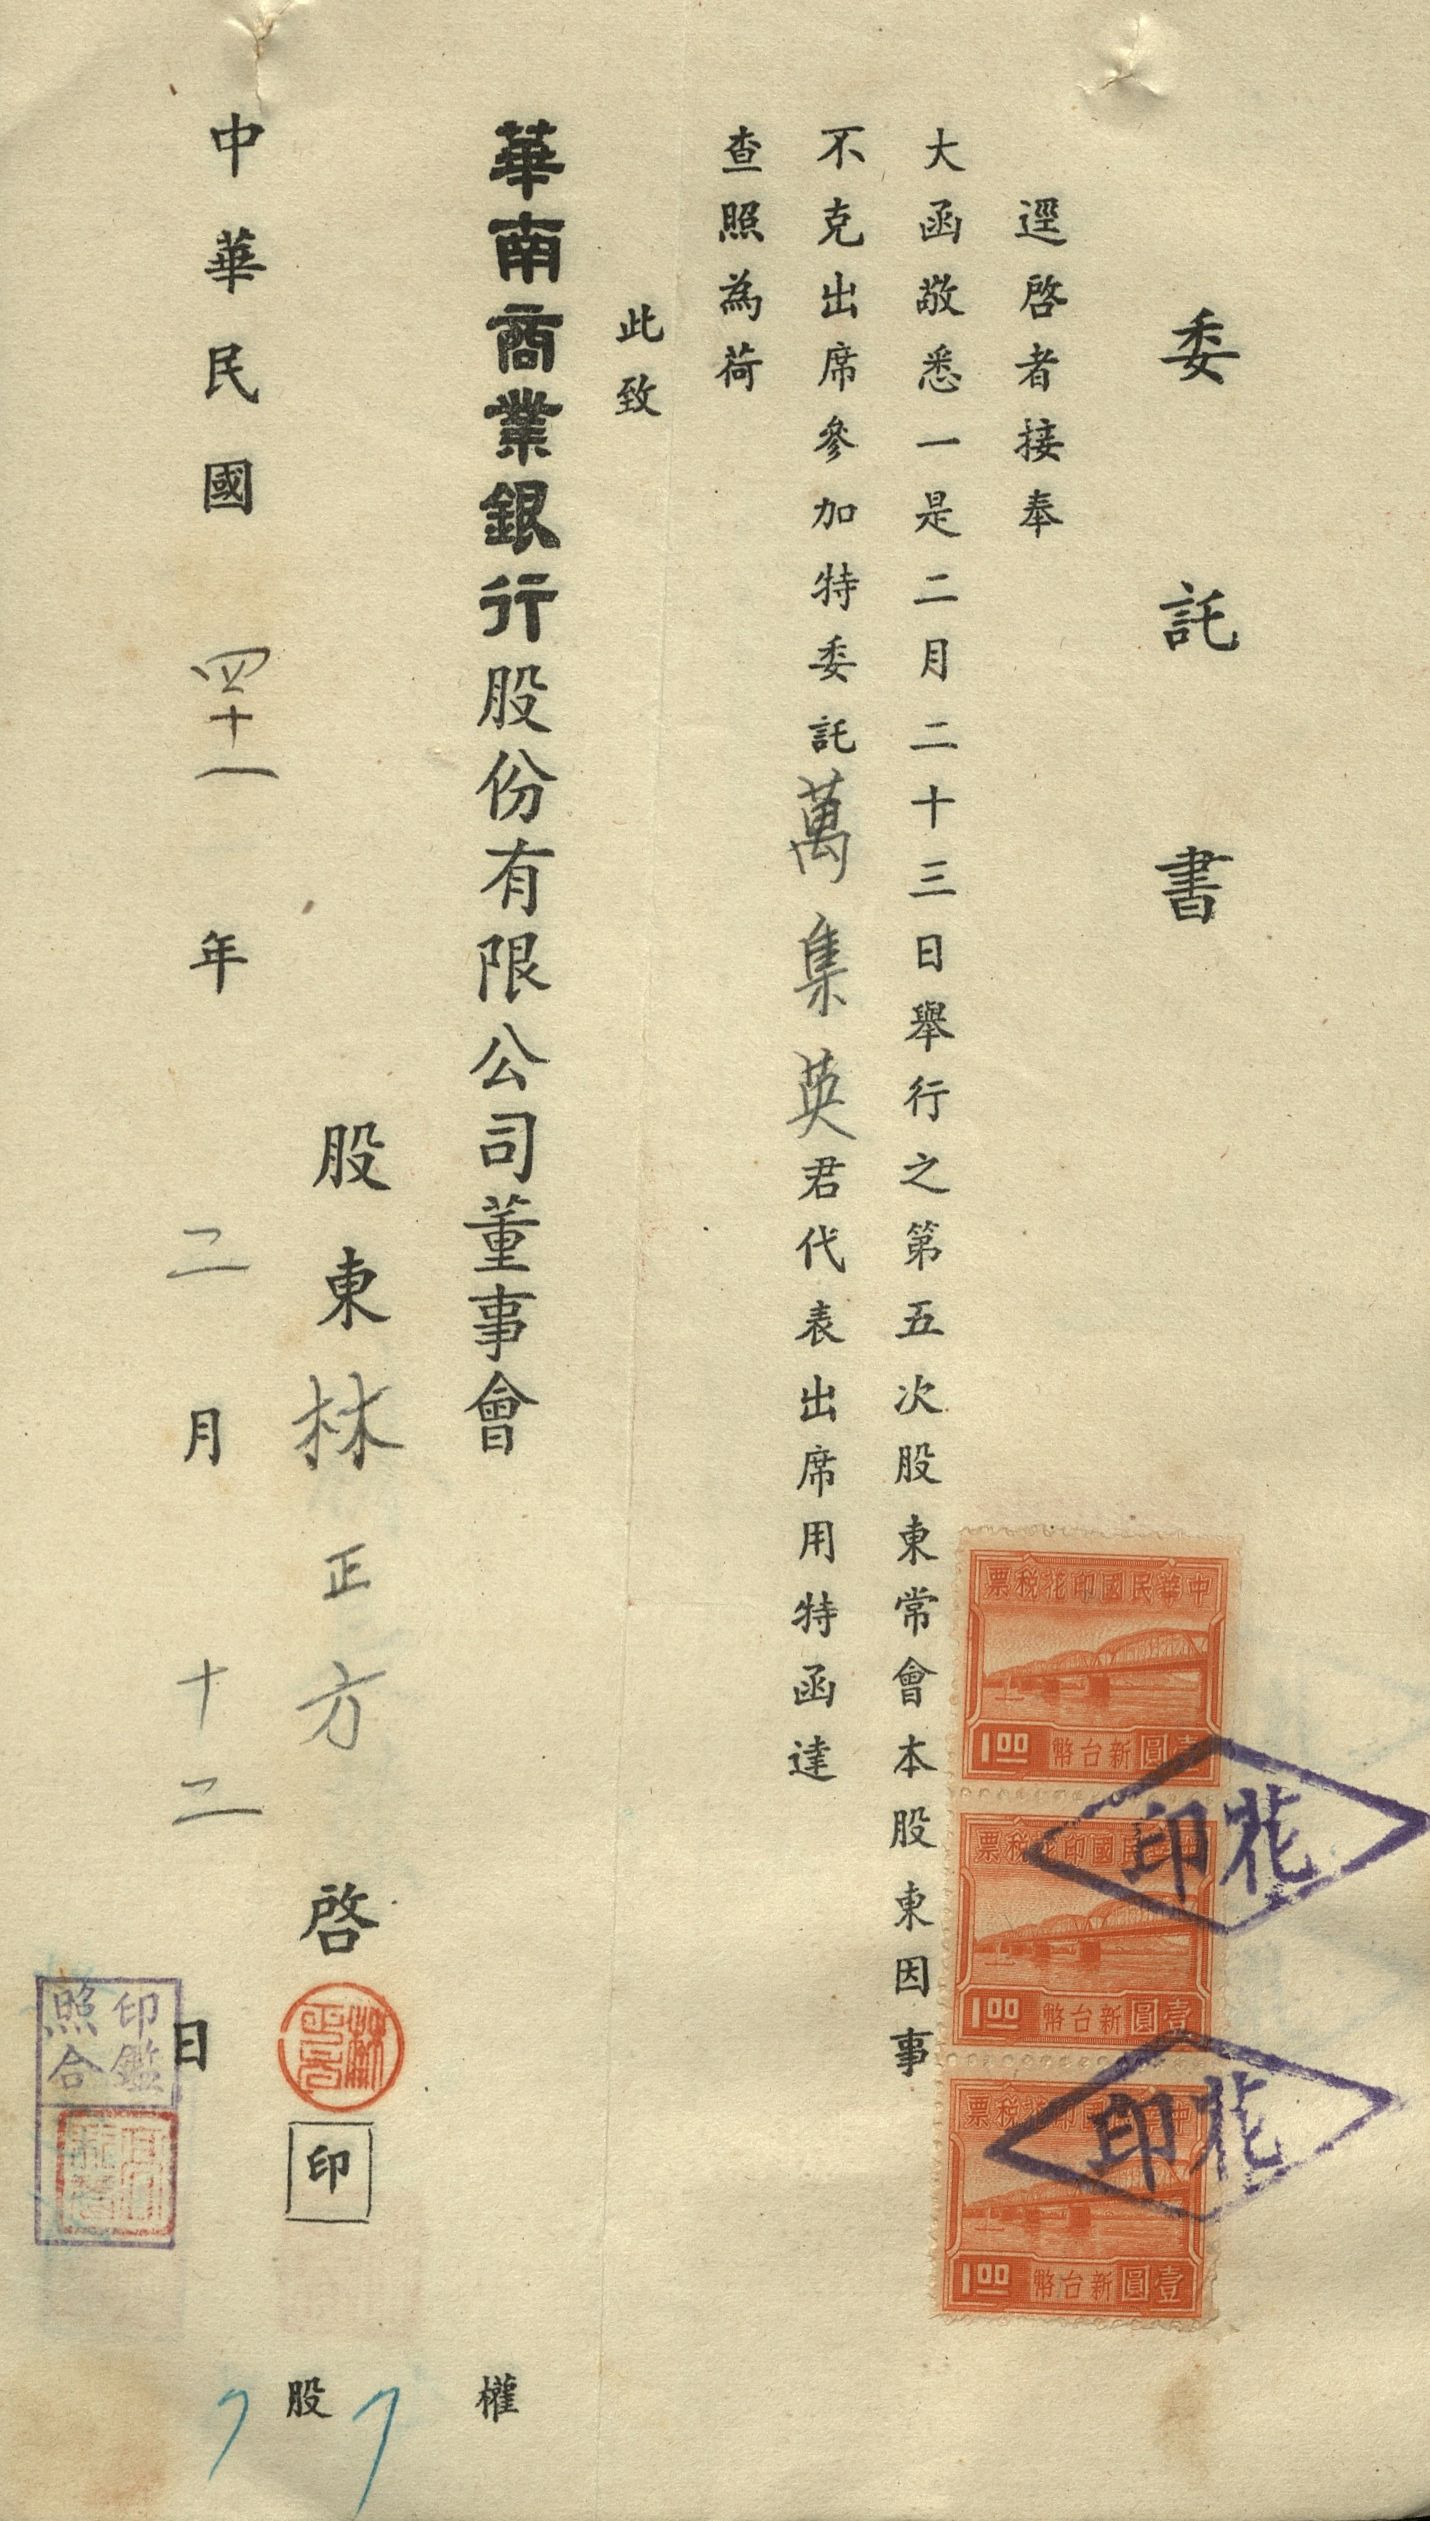 委託書
逕啓者接奉
大函敬悉一是二月二十三日舉行之第五次股東常會本股東因事
不克出席參加特委託萬集英君代表出席用特函達
查照為荷
此致
華南商業銀行股份有限公司董事會
股東林正方啓
印
中華民國四十一年二月十二日
權
股
印鑑
照合
中華民國印花稅票
1.00 新台幣壹圓
中華民國印花稅票
1.00 新台幣壹圓
中華民國印花稅票
1.00 新台幣壹圓
印花
印花